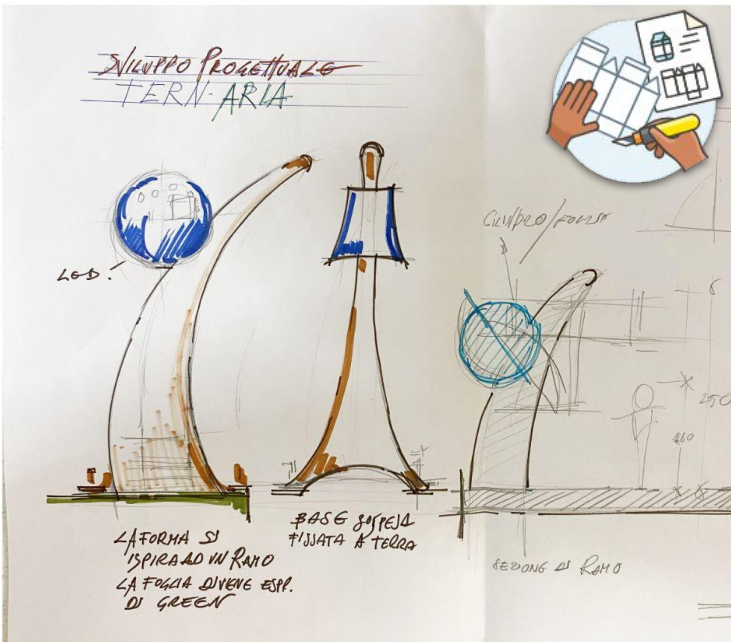 SVILUPPO PROGETTUALE
TERN-ARIA
CILINDRO/
LED.
250
LA FORMA SI
ISPIRA AD UN RAMO
LA FOGLIA DIVENE ESPR.
DI GREEN
BASE SOSPESA
FISSATA A TERRA
SEZIONE DI RAMO